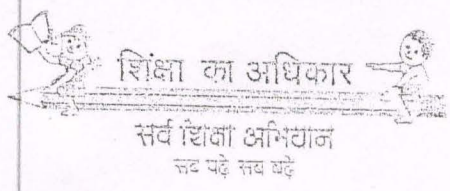 शिक्षा का अधिकार
सर्व शिक्षा अभियान
सब पढ़े सब बढ़े